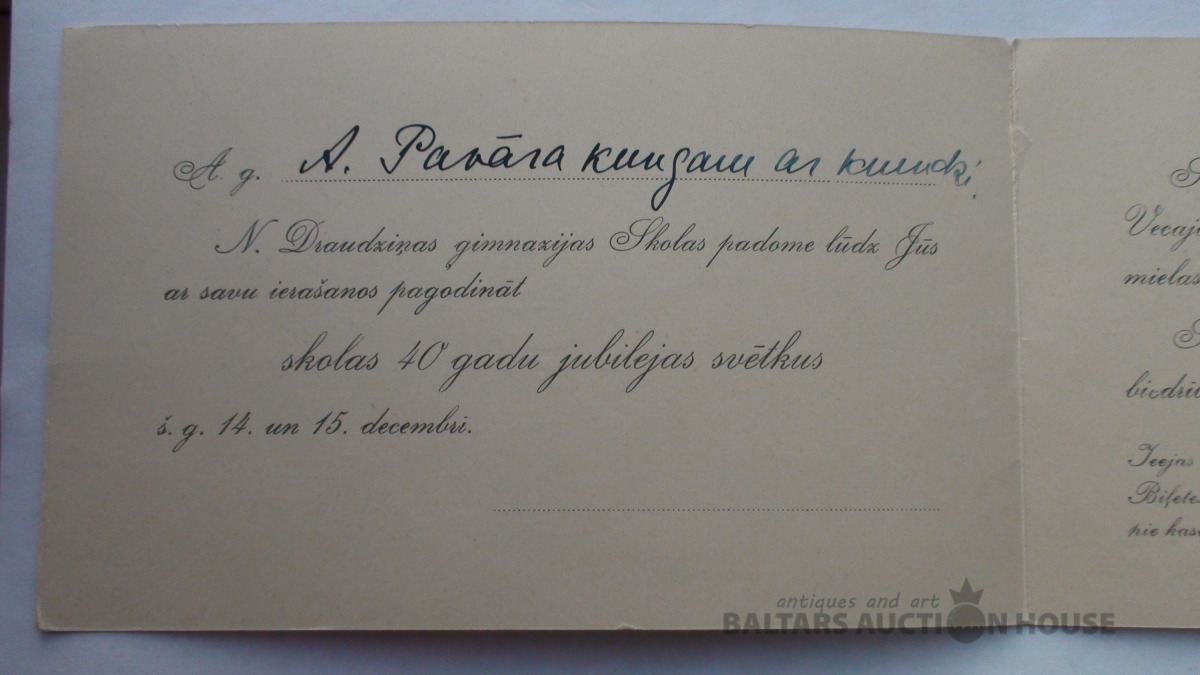 A. g. A. Pavāra kungam ar kundzi.
N. Draudziņas gimnazijas Skolas padome lūdz Jūs
ar savu ierašanos pagodināt
skolas 40 gadu jubilejas svētkus
š. g. 14. un 15. decembri.
Vecaj
mielas
biedrī
Ieejas
Biļete
pie kas
antiques and art
BALTARS AUCTION HOUSE